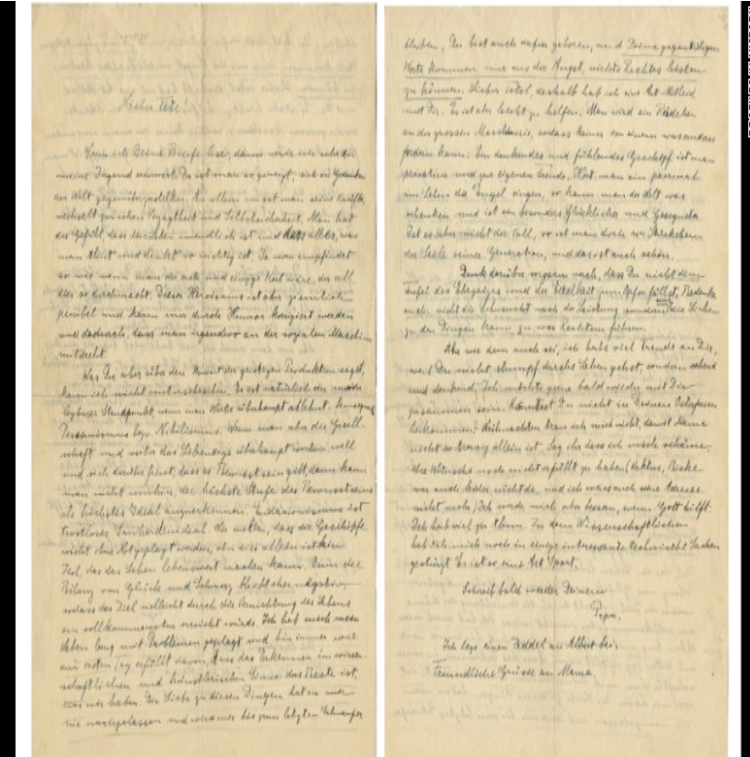 Lieber Tetel!
Wenn ich Deine Briefe lese, dann werde ich sehr an
meine Jugend erinnert. Da ist man so geneigt, sich in Gedanken
der Welt gegenüberzustellen. An allem misst man seine Kräfte,
wechselt zwischen Verzagtheit und Selbstsicherheit. Man hat
das Gefühl, dass das Leben unendlich ist und dass alles, was
man thut und denkt so wichtig ist. Ja man empfindet
so wie wenn man der erste und einzige Kerl wäre, der all
dies so durchmacht. Dieser Heroismus ist aber ziemlich
penibel und kann nur durch Humor korrigiert werden
und dadurch, dass man irgendwie an der sozialen Maschine
mitdreht.
Was Du aber über den Unwert der geistigen Produktion sagst,
kann ich nicht mit unterschreiben. Es ist natürlich ein
Standpunkt wenn man Werte überhaupt ablehnt. Konsequenz
Pessimismus bzw. Nihilismus. Wenn man aber die Gesell-
schaft und weiter das Lebendige überhaupt werten will
und sich darüber freut, dass es Bewusstsein gibt, dann kann
man nicht umhin, die höchste Stufe des Bewusstseins
als höchstes Ideal anzuerkennen. Eudämonismus ist
trostloses Schweineideal. Wir wollen, dass die Geschöpfe
nicht ohne Not geplagt werden, aber dies allein ist kein
Ziel, das das Leben lebenswert machen kann. Denn die
Bilanz von Glück und Schmerz bleibt eher negativ,
sodass das Ziel vielleicht durch die Vernichtung des Lebens
am vollkommensten erreicht würde. Ich hab mich mein
Leben lang mit Problemen geplagt und bin immer wie
am ersten Tag erfüllt davon, dass das Erkennen im wissen-
schaftlichen und künstlerischen Sinne das Beste ist,
was wir haben. Die Liebe zu diesen Dingen hat in mir
nie nachgelassen und wird mir bis zum letzten Schnaufer
bleiben. Du bist auch dafür geboren, und Deine gegenteiligen
Worte kommen nur aus der Angst, nichts Rechtes leisten
zu können. Lieber Tetel, deshalb hab ich eine Art Mitleid
mit Dir. Es ist aber leicht zu helfen. Man wird ein Rädchen
an der grossen Maschinerie, sodass keiner von einem was anderes
fordern kann. Ein denkendes und fühlendes Geschöpf ist man
privatim und zur eigenen Freude. Hört man ein paarmal
im Leben die Engel singen, so kann man der Welt was
schenken und ist ein besonders Glücklicher und Gesegneter.
Ist es aber nicht der Fall, so ist man doch ein
der Seele seiner Generation, und das ist auch schön.
Denk darüber ungern nach, dass Du nicht dem
Teufel des Ehrgeizes und der Eitelkeit zum Opfer fällst. Bedenke
auch, nicht die Sehnsucht nach der Leistung sondern die Liebe
zu den Dingen kann zu was Rechtem führen.
Aber wie dem auch sei, ich habe viel Freude an Dir,
weil Du nicht stumpf durchs Leben gehst, sondern sehend
und denkend. Ich möchte gerne bald wieder mit Dir
zusammen sein. Könntest Du nicht in Deinen Osterferien
herkommen? Weihnachten trau ich mich nicht, damit Mama
nicht so traurig allein ist. Sag ihr dass ich mich schäme,
ihre Wünsche noch nicht erfüllt zu haben (Kaktus, Birke
war auch leider nicht da, und ich weiss auch seine Adresse
nicht mehr. Ich werde mich aber bessern, wenn Gott hilft.
Ich hab viel zu thun. Zu dem Wissenschaftlichen
hab ich mich noch in einige interessante technische Sachen
gestürzt. Es ist so eine Art Sport.
Schreib bald wieder Deinem
Papa.
Ich lege einen Zeddel an Albert bei.
Freundliche Grüsse an Mama.